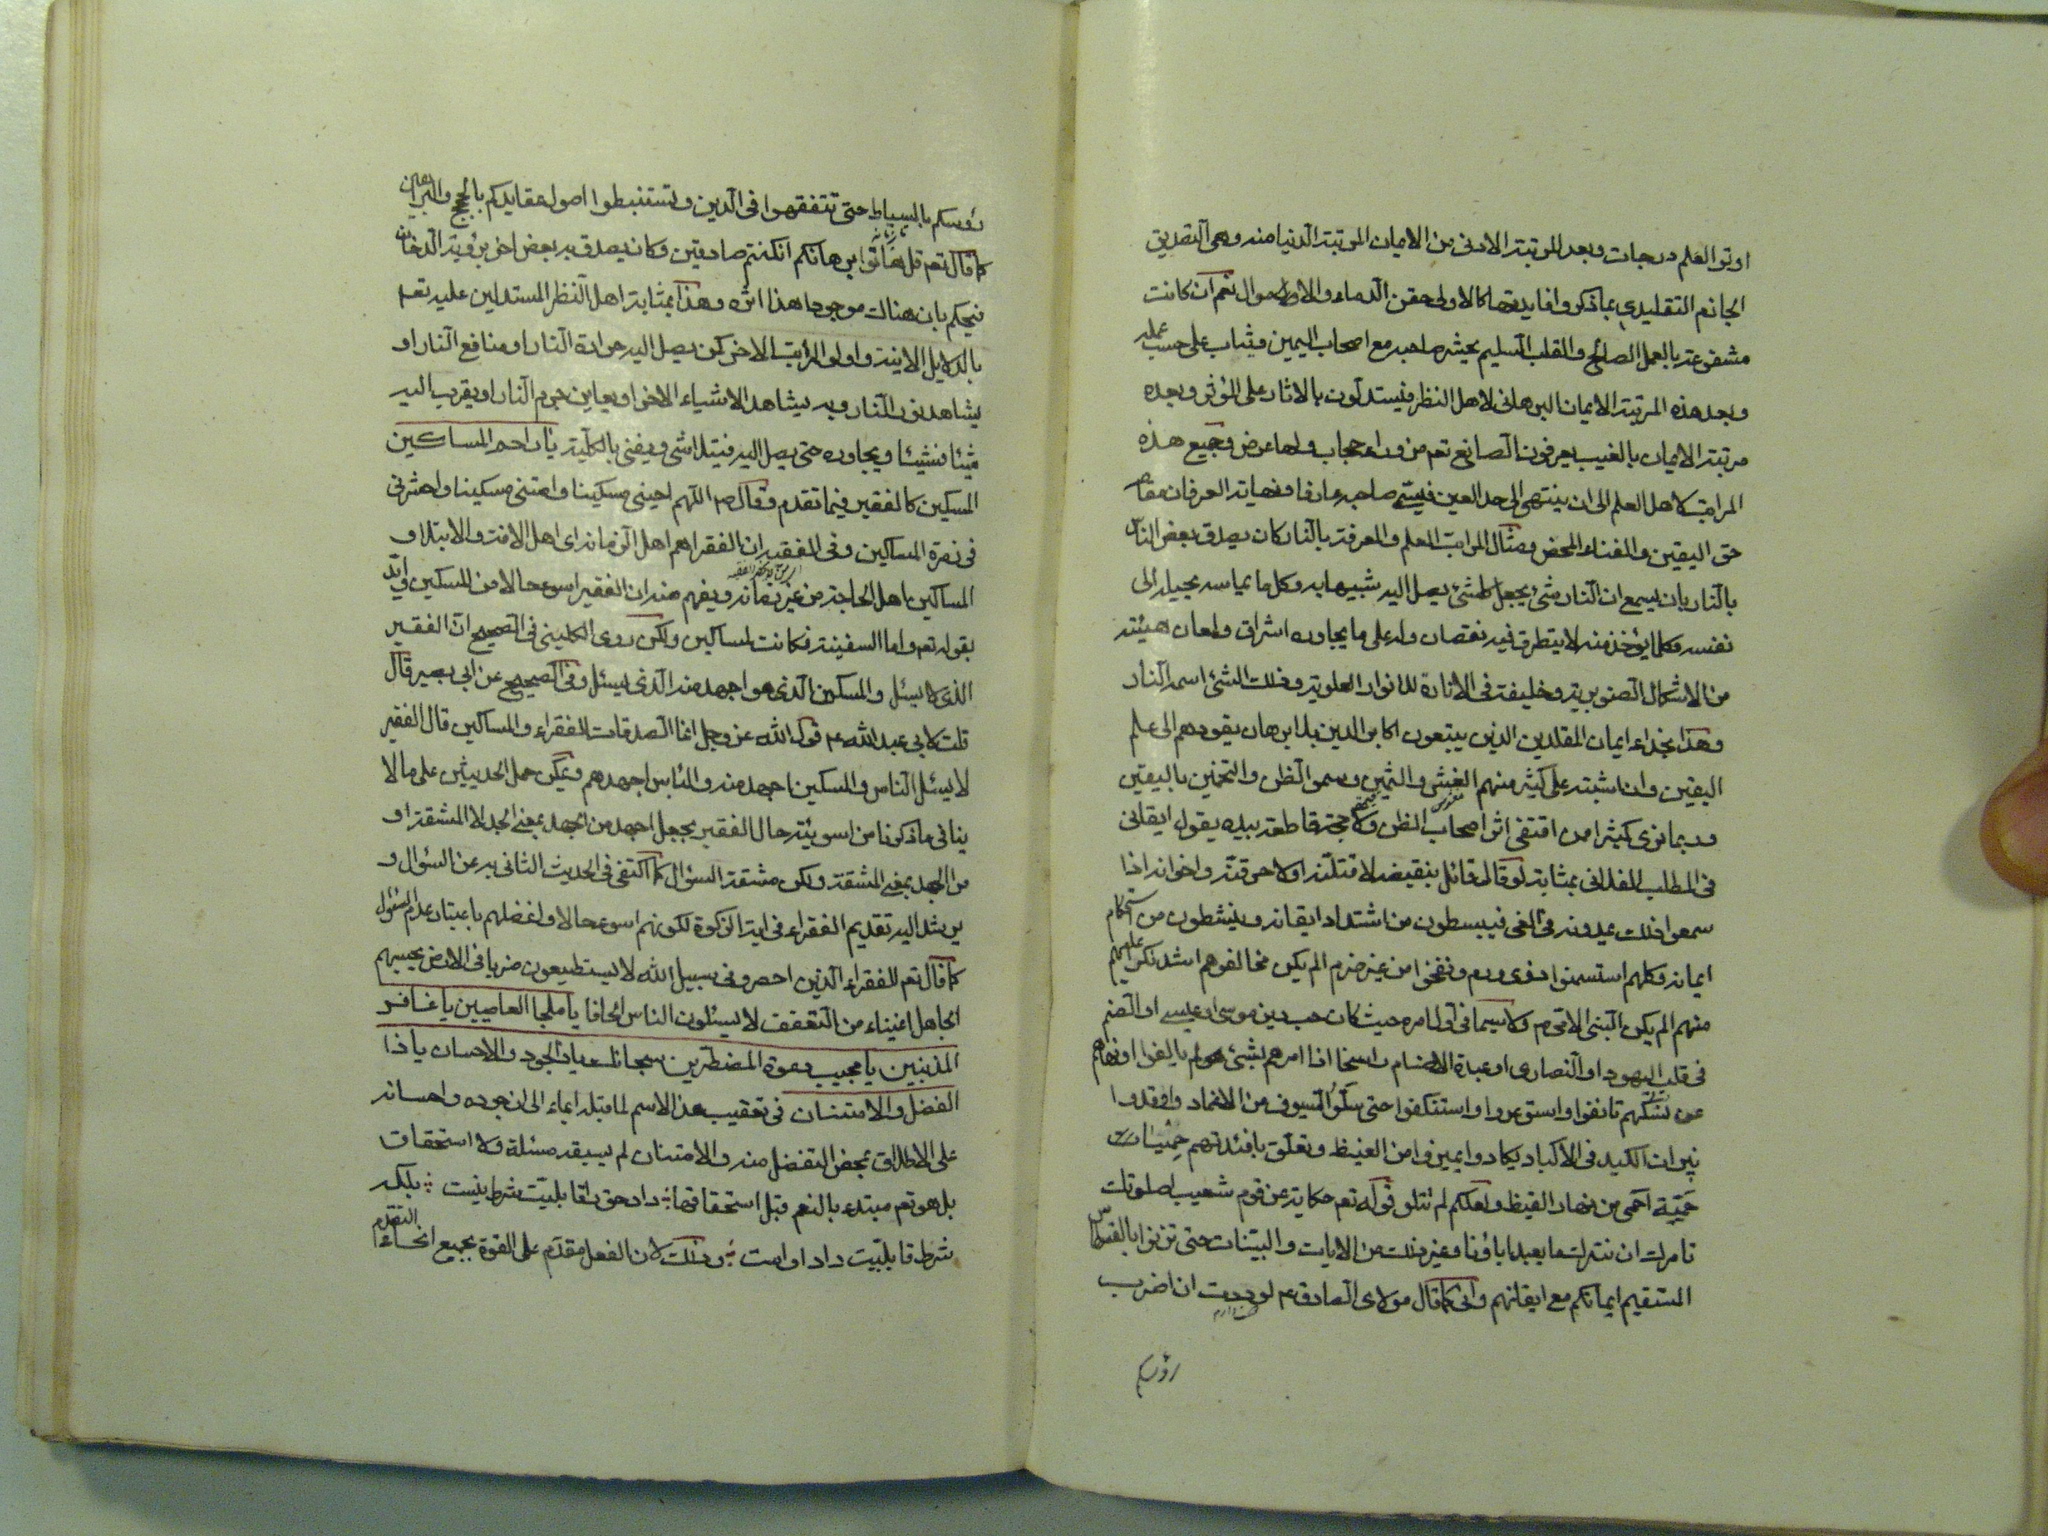 اوتوا العلم درجات وبعد المرتبة الادنى من الايمان المرتبة الدنيا منه وهى التصديق
الجازم التقليدى بما ذكر وفايدتها كالاولى حقن الدماء والاموال نعم ان كانت
مشفوعة بالعمل الصالح والقلب السليم يحشر صاحبه مع اصحاب اليمين ويثاب على حسب عمله
وبعد هذه المرتبة الايمان البرهانى لاهل النظر فيستدلون بالاثار على المؤثر وبعده
مرتبة الايمان بالغيب يعرفون الصانع تعم من وراء حجاب ولها عرض وجميع هذه
المراتب لاهل العلم الى ان ينتهى الى حد العين فيسمى صاحبه عارفا ونهاية العرفان مقام
حق اليقين والفناء المحض ومثال المراتب العلم والمعرفة بالنار كان يصدق بعض الناس
بالنار بان يسمع ان النار شئ يجعل كلشئ يصل اليه شبيها به وكل ما يماسه يحيله الى
نفسه وكلما يؤخذ منه لا يتطرق فيه نقصان وله على ما يجاوره اشراق ولمعان هيئته
من الاشكال الصنوبرية وخليفة فى الانارة للانوار العلوية وذلك الشئ اسمه النار
وهذا بحذاء ايمان المقلدين الذين يتبعون اكابر الدين بلا برهان يقودهم الى علم
اليقين وان اشتبه على كثير منهم الغث والثمين وسموا الظن والتخمين باليقين
وربما نرى كثيرا ممن اقتفى اثر اصحاب الظن ولا حجة قاطعة بيده يقول ايقانى
فى المطلب الفلانى بمثابة لو قال قائل بنقيضه لاقتلنه اولاحرقنه واخوانه اذا
سمعوا ذلك يمدونه فى الغى فيبسطون من اشتداد ايقانه وينشطون من استحكام
ايمانه وكلهم استسمنوا ذوى ورم ونفخوا من غير ضرم الم يكن مخالفوهم اشد نكيرا عليهم
منهم الم يكن النبى الاقوم ولا سيما فى اول امره حيث كان حب دين موسى او عيسى او الصنم
فى قلب اليهود او النصارى او عبدة الاصنام راسخا اذا امرهم بشئ لم يالفوا او نهاهم
عن نسكهم تانفوا واستوعروا واستنكفوا حتى سلوا السيوف من الاغماد واوقدوا
نيران الكيد فى الاكباد يكادوا يميزوا من الغيظ وتعلق بافئدتهم حميات
حمية احمى من نهار القيظ ولعلكم لم تتلو قوله تعم حكاية عن قوم شعيب اصلوتك
تامرك ان نترك ما يعبد اباؤنا وغير ذلك من الايات والبينات حتى تزنوا بالقسطاس
المستقيم ايمانكم مع ايقانهم وانى كما قال مولاى الصادق ع لوددت ان اضرب
رؤسكم
رؤسكم بالسياط حتى تتفقهوا فى الدين وتستنبطوا اصول عقايدكم بالحجج والبراهين
كما قال تعم قل هاتوا برهانكم ان كنتم صادقين وكان يصدق به بعض اخر برؤية الدخان
فيحكم بان هناك موجودا هذا اثره وهذا بمثابة اهل النظر المستدلين عليه تعم
بالدلايل الانية واولوا المراتب الاخر كمن يصل اليه حرارة النار او منافع النار او
يشاهد نور النار وبه يشاهد الاشياء الاخر او يعاين جرم النار او يقرب اليه
شيئا فشيئا ويجاوره حتى يصل اليه فيتلاشى ويفنى بالكلية يا راحم المساكين
المسكين كالفقير فيما تقدم وقال ص اللهم احينى مسكينا وامتنى مسكينا واحشرنى
فى زمرة المساكين وفى الفقيه ان الفقراء هم اهل الزمانة اى اهل الافة والابتلاء و
المساكين اهل الحاجة من غير زمانة ويفهم منه ان الفقير اسوء حالا من المسكين وايد
بقوله تعم واما السفينة فكانت لمساكين ولكن روى الكلينى فى الصحيح ان الفقير
الذى لا يسئل والمسكين الذى هو اجهد منه الذى يسئل وفى الصحيح عن ابى بصير قال
قلت لابى عبد الله ع قول الله عز وجل انما الصدقات للفقراء والمساكين قال الفقير
لا يسئل الناس والمسكين اجهد منه والبائس اجهدهم ويمكن حمل الحديثين على ما لا
ينافى ما ذكرنا من اسوئية حال الفقير بجعل اجهد من الجهد بمعنى الجد لا المشقة او
من الجهد بمعنى المشقة ولكن مشقة السؤال كما اكتفى فى الحديث الثانى به عن السؤال و
يرشد اليه تقديم الفقراء فى اية الزكوة لكونهم اسوء حالا وافضلهم باعتبار عدم السؤال
كما قال تعم للفقراء الذين احصروا فى سبيل الله لا يستطيعون ضربا فى الارض يحسبهم
الجاهل اغنياء من التعفف لا يسئلون الناس الحافا يا ملجا العاصين يا غافر
المذنبين يا مجيب دعوة المضطرين سبحانك يا ذا الجود والاحسان يا ذا
الفضل والامتنان فى تعقيب هذا الاسم لما قبله ايماء الى ان جوده واحسانه
على الاطلاق بمحض التفضل منه والامتنان لم يسبقه مسئلة ولا استحقاق
بل هو تعم مبتدء بالنعم قبل استحقاقها داد حق را قابليت شرط نيست بلكه
شرط قابليت داد اوست وذلك لان الفعل مقدم على القوة بجميع انحاء التقدم